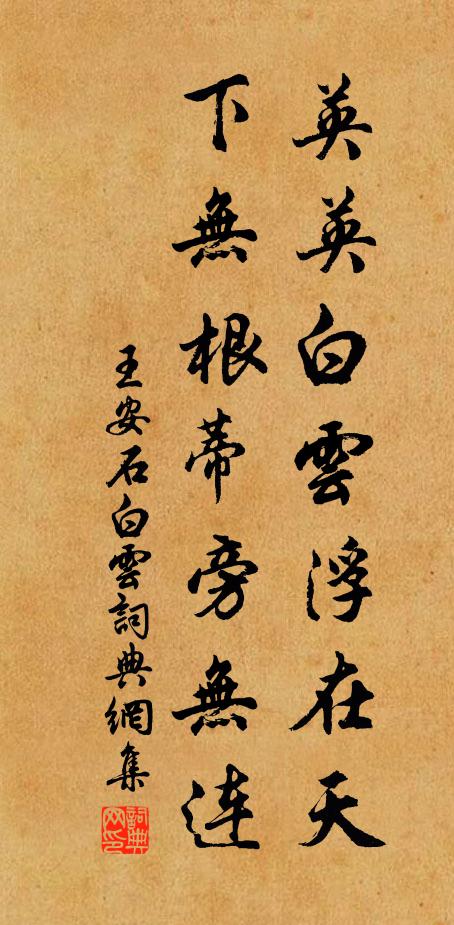 英英白雲浮在天
下無根蒂旁無連
王安石白雲詞典網集
詞典网印